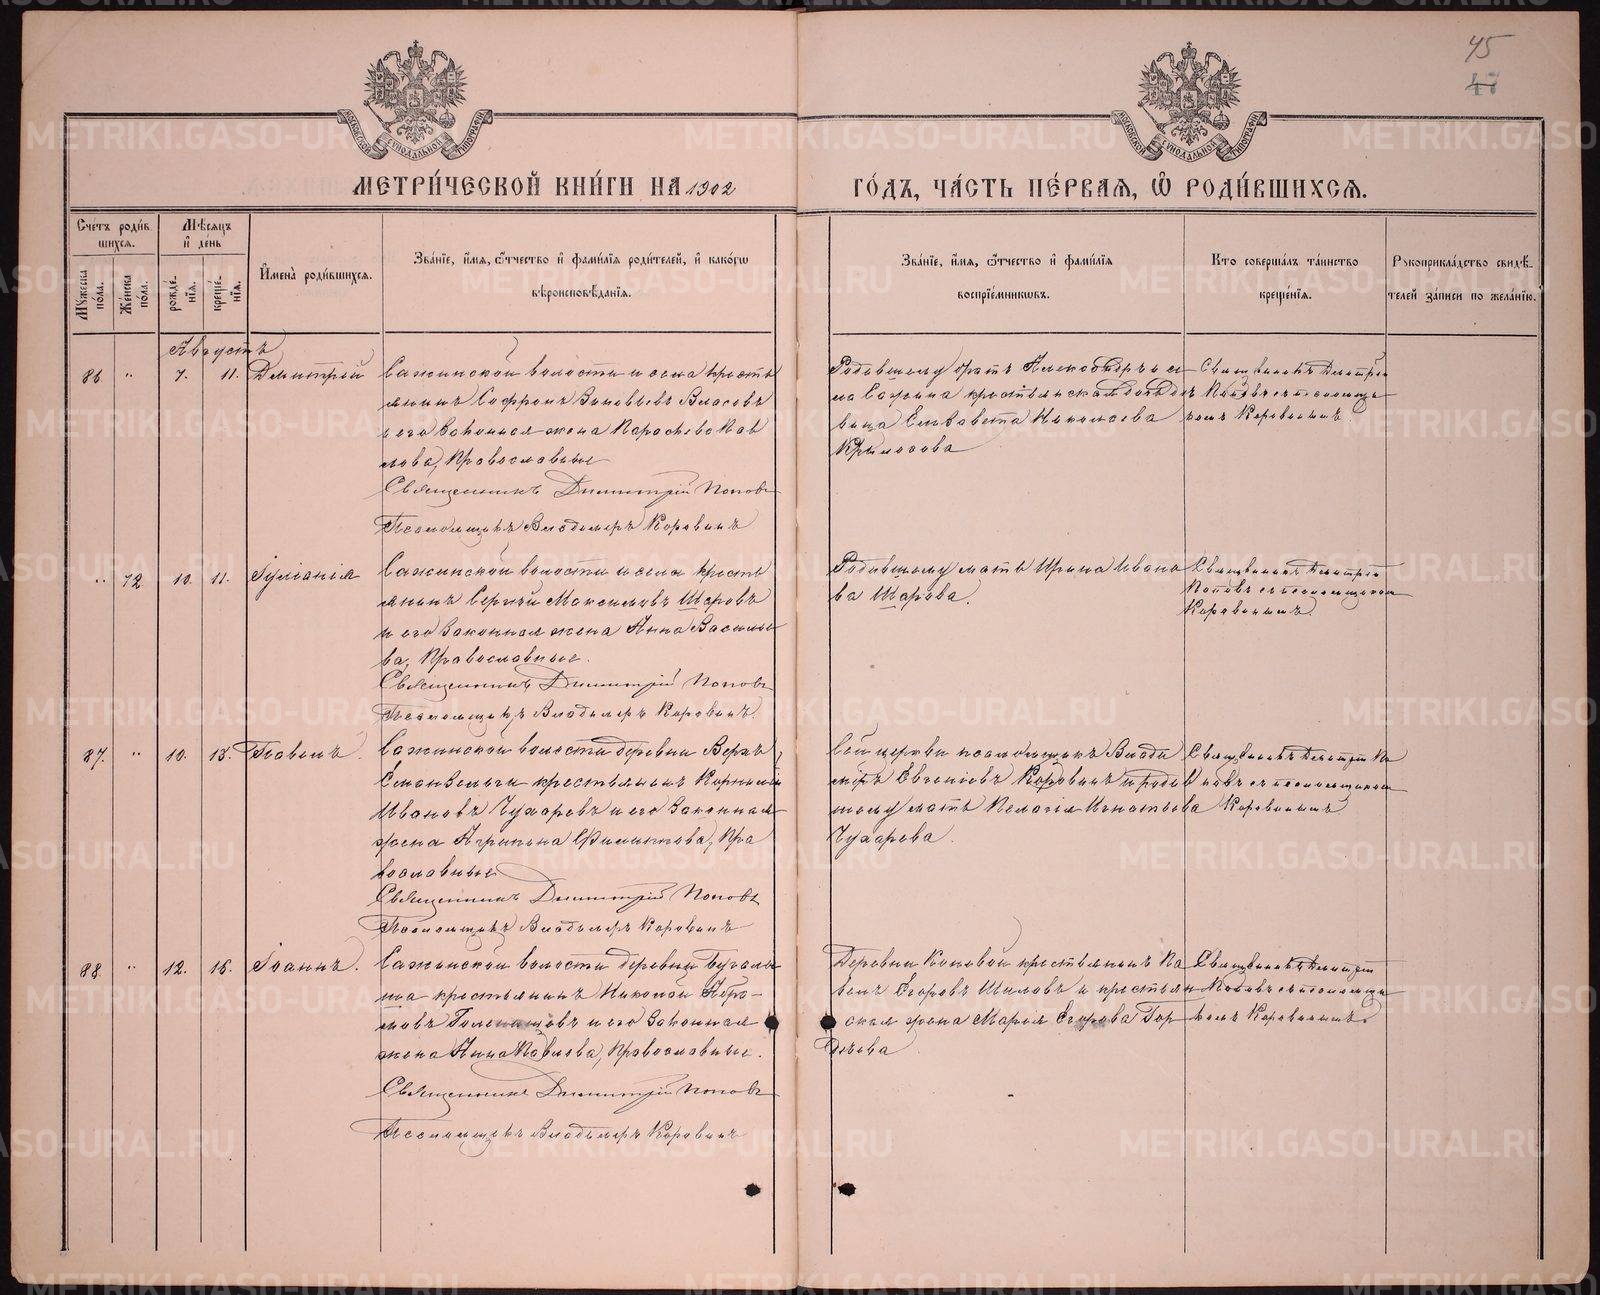 45
47
МОСКОВСКОЙ СѴНОДАЛЬНОЙ ТИПОГРАФІИ
МОСКОВСКОЙ СѴНОДАЛЬНОЙ ТИПОГРАФІИ
МЕТРИ́ЧЕСКОЙ КНИ́ГИ НА 1902 ГО́ДЪ, ЧА́СТЬ ПЕ́РВАЯ, Ѡ РОДИ́ВШИХСѦ.
Счетъ роди́вшихсѧ.
Мꙋ́жеска по́ла.
Же́нска по́ла.
Мѣ́сѧцъ и҆ де́нь
рожде́нїѧ.
креще́нїѧ.
И҆мена̀ роди́вшихсѧ.
Зва́нїе, и҆́мѧ, ѻ҆́тчество и҆ фами́лїѧ роди́телей, и҆ како́гѡ
вѣроисповѣ́данїѧ.
Зва́нїе, и҆́мѧ, ѻ҆́тчество и҆ фами́лїѧ
воспрїе́мникѡвъ.
Кто соверша́лъ та́инство
креще́нїѧ.
Рꙋкоприкла́дство свидѣ́телей за́писи по жела́нїю.
Августъ
86 " 7. 11. Димитрій
Сажинской волости и села кресть
янинъ Софронъ Зиновьевъ Власовъ
и его законная жена Параскева Пав
лова, Православные
Священникъ Димитрій Поповъ
Псаломщикъ Владимиръ Коровинъ
Родившому братъ Александръ и се
ла Сажина крестьянская
вица Елизавета Николаева
Крылосова
Священникъ Димитрій
Поповъ с псаломщи
комъ Коровинымъ
" 72 10. 11. Іуліанія
Сажинской волости и села кресть
янинъ Сергій Максимовъ Шаровъ
и его законная жена Анна Василье
ва, Православные.
Священникъ Димитрій Поповъ
Псаломщикъ Владимиръ Коровинъ.
Родившому мать Ирина Ивано
ва Шарова.
Священникъ Димитрій
Поповъ съ псаломщикомъ
Коровинымъ.
87. " 10. 13. Павелъ.
Сажинской волости деревни Верхъ
крестьянинъ Корнилій
Ивановъ Чухаревъ и его законная
жена Агрипина Филиппова, Пра
вославные
Священникъ Димитрій Поповъ
Псаломщикъ Владимиръ Коровинъ
Сей церкви псаломщикъ Влади
міръ Евгеніевъ Коровинъ и родив
шому мать Пелагія Игнатьева
Чухарева.
Священникъ Димитрій По
повъ съ псаломщикомъ
Коровинымъ
88. " 12. 16. Іоаннъ.
Сажинской волости деревни Бугалы
ша крестьянинъ Николай Абра-
мовъ и его законная
жена Анна Павлова, Православные.
Священникъ Димитрій Поповъ
Псаломщикъ Владимиръ Коровинъ
Деревни Коновой крестьянинъ Па
велъ Егоровъ Шиловъ и крестьян
ская жена Марья Егорова Гор
дѣева
Священникъ Димитрій
Поповъ съ псаломщи
комъ Коровинымъ.
METRIKI.GASO-URAL.RU